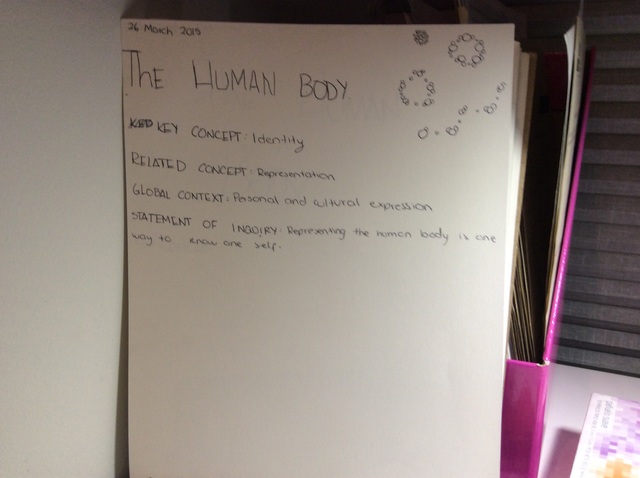 26 March 2015
THE HUMAN BODY
KEY CONCEPT: Identity
RELATED CONCEPT: Representation
GLOBAL CONTEXT: Pasonal and cultural expression
STATEMENT OF INQUIRY: Representing the human body is one
way to know one self.